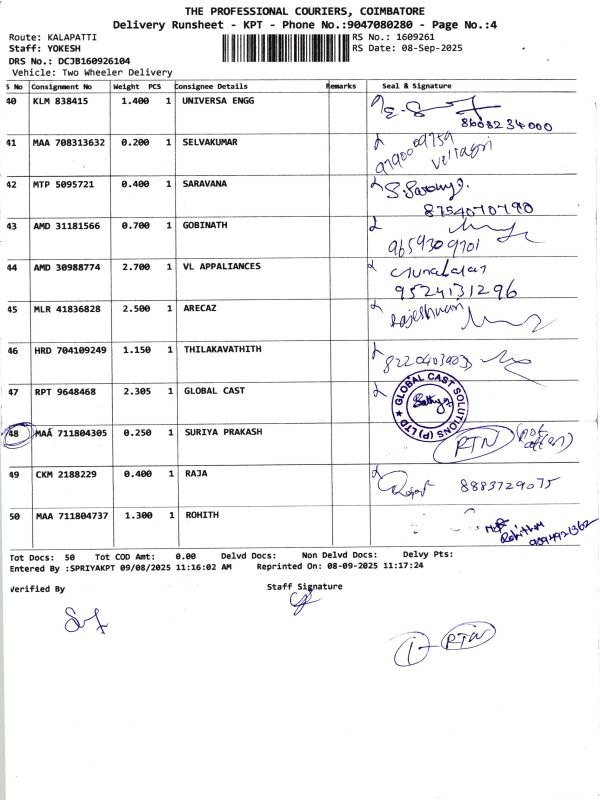 THE PROFESSIONAL COURIERS, COIMBATORE
Delivery Runsheet - KPT - Phone No.:9047080280 - Page No.:4
Route: KALAPATTI RS No.: 1609261
Staff: YOKESH RS Date: 08-Sep-2025
DRS No.: DCJB160926104
Vehicle: Two Wheeler Delivery
S No Consignment No Weight PCS Consignee Details Remarks Seal & Signature
40 KLM 838415 1.400 1 UNIVERSA ENGG
8608234000
41 MAA 708313632 0.200 1 SELVAKUMAR
9790009759
42 MTP 5095721 0.400 1 SARAVANA
8754070790
43 AMD 31181566 0.700 1 GOBINATH
9659309701
44 AMD 30988774 2.700 1 VL APPALIANCES
9524131296
45 MLR 41836828 2.500 1 ARECAZ
Rajeshwari
46 HRD 704109249 1.150 1 THILAKAVATHITH
8220403903
47 RPT 9648468 2.305 1 GLOBAL CAST
GLOBAL CAST SOLUTIONS (P) LTD
48 MAA 711804305 0.250 1 SURIYA PRAKASH
RTN
49 CKM 2188229 0.400 1 RAJA
8883729075
50 MAA 711804737 1.300 1 ROHITH
Tot Docs: 50 Tot COD Amt: 0.00 Delvd Docs: Non Delvd Docs: Delvy Pts:
Entered By :SPRIYAKPT 09/08/2025 11:16:02 AM Reprinted On: 08-09-2025 11:17:24
Verified By Staff Signature
1 - RTN